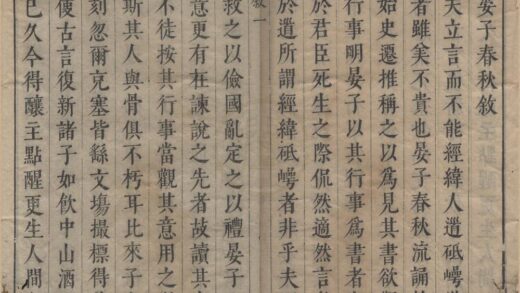 晏子春秋敘
夫立言而不能經緯人道砥崿道
者雖美不貴也晏子春秋流誦
始史遷推稱之以爲見其書欲
行事明晏子以其行事爲書者
於君臣死生之際侃然適然言
於道所謂經緯砥崿者非乎夫
敘一
敘之以儉國亂定之以禮晏子
意更有在諫說之先者故讀其
不徒按其行事當觀其意用之
斯其人與骨俱不朽耳比來子
刻忽爾充塞皆繇文場撮標得
便古言復新諸子如飲中山酒
已久今得釀主點醒更生人間